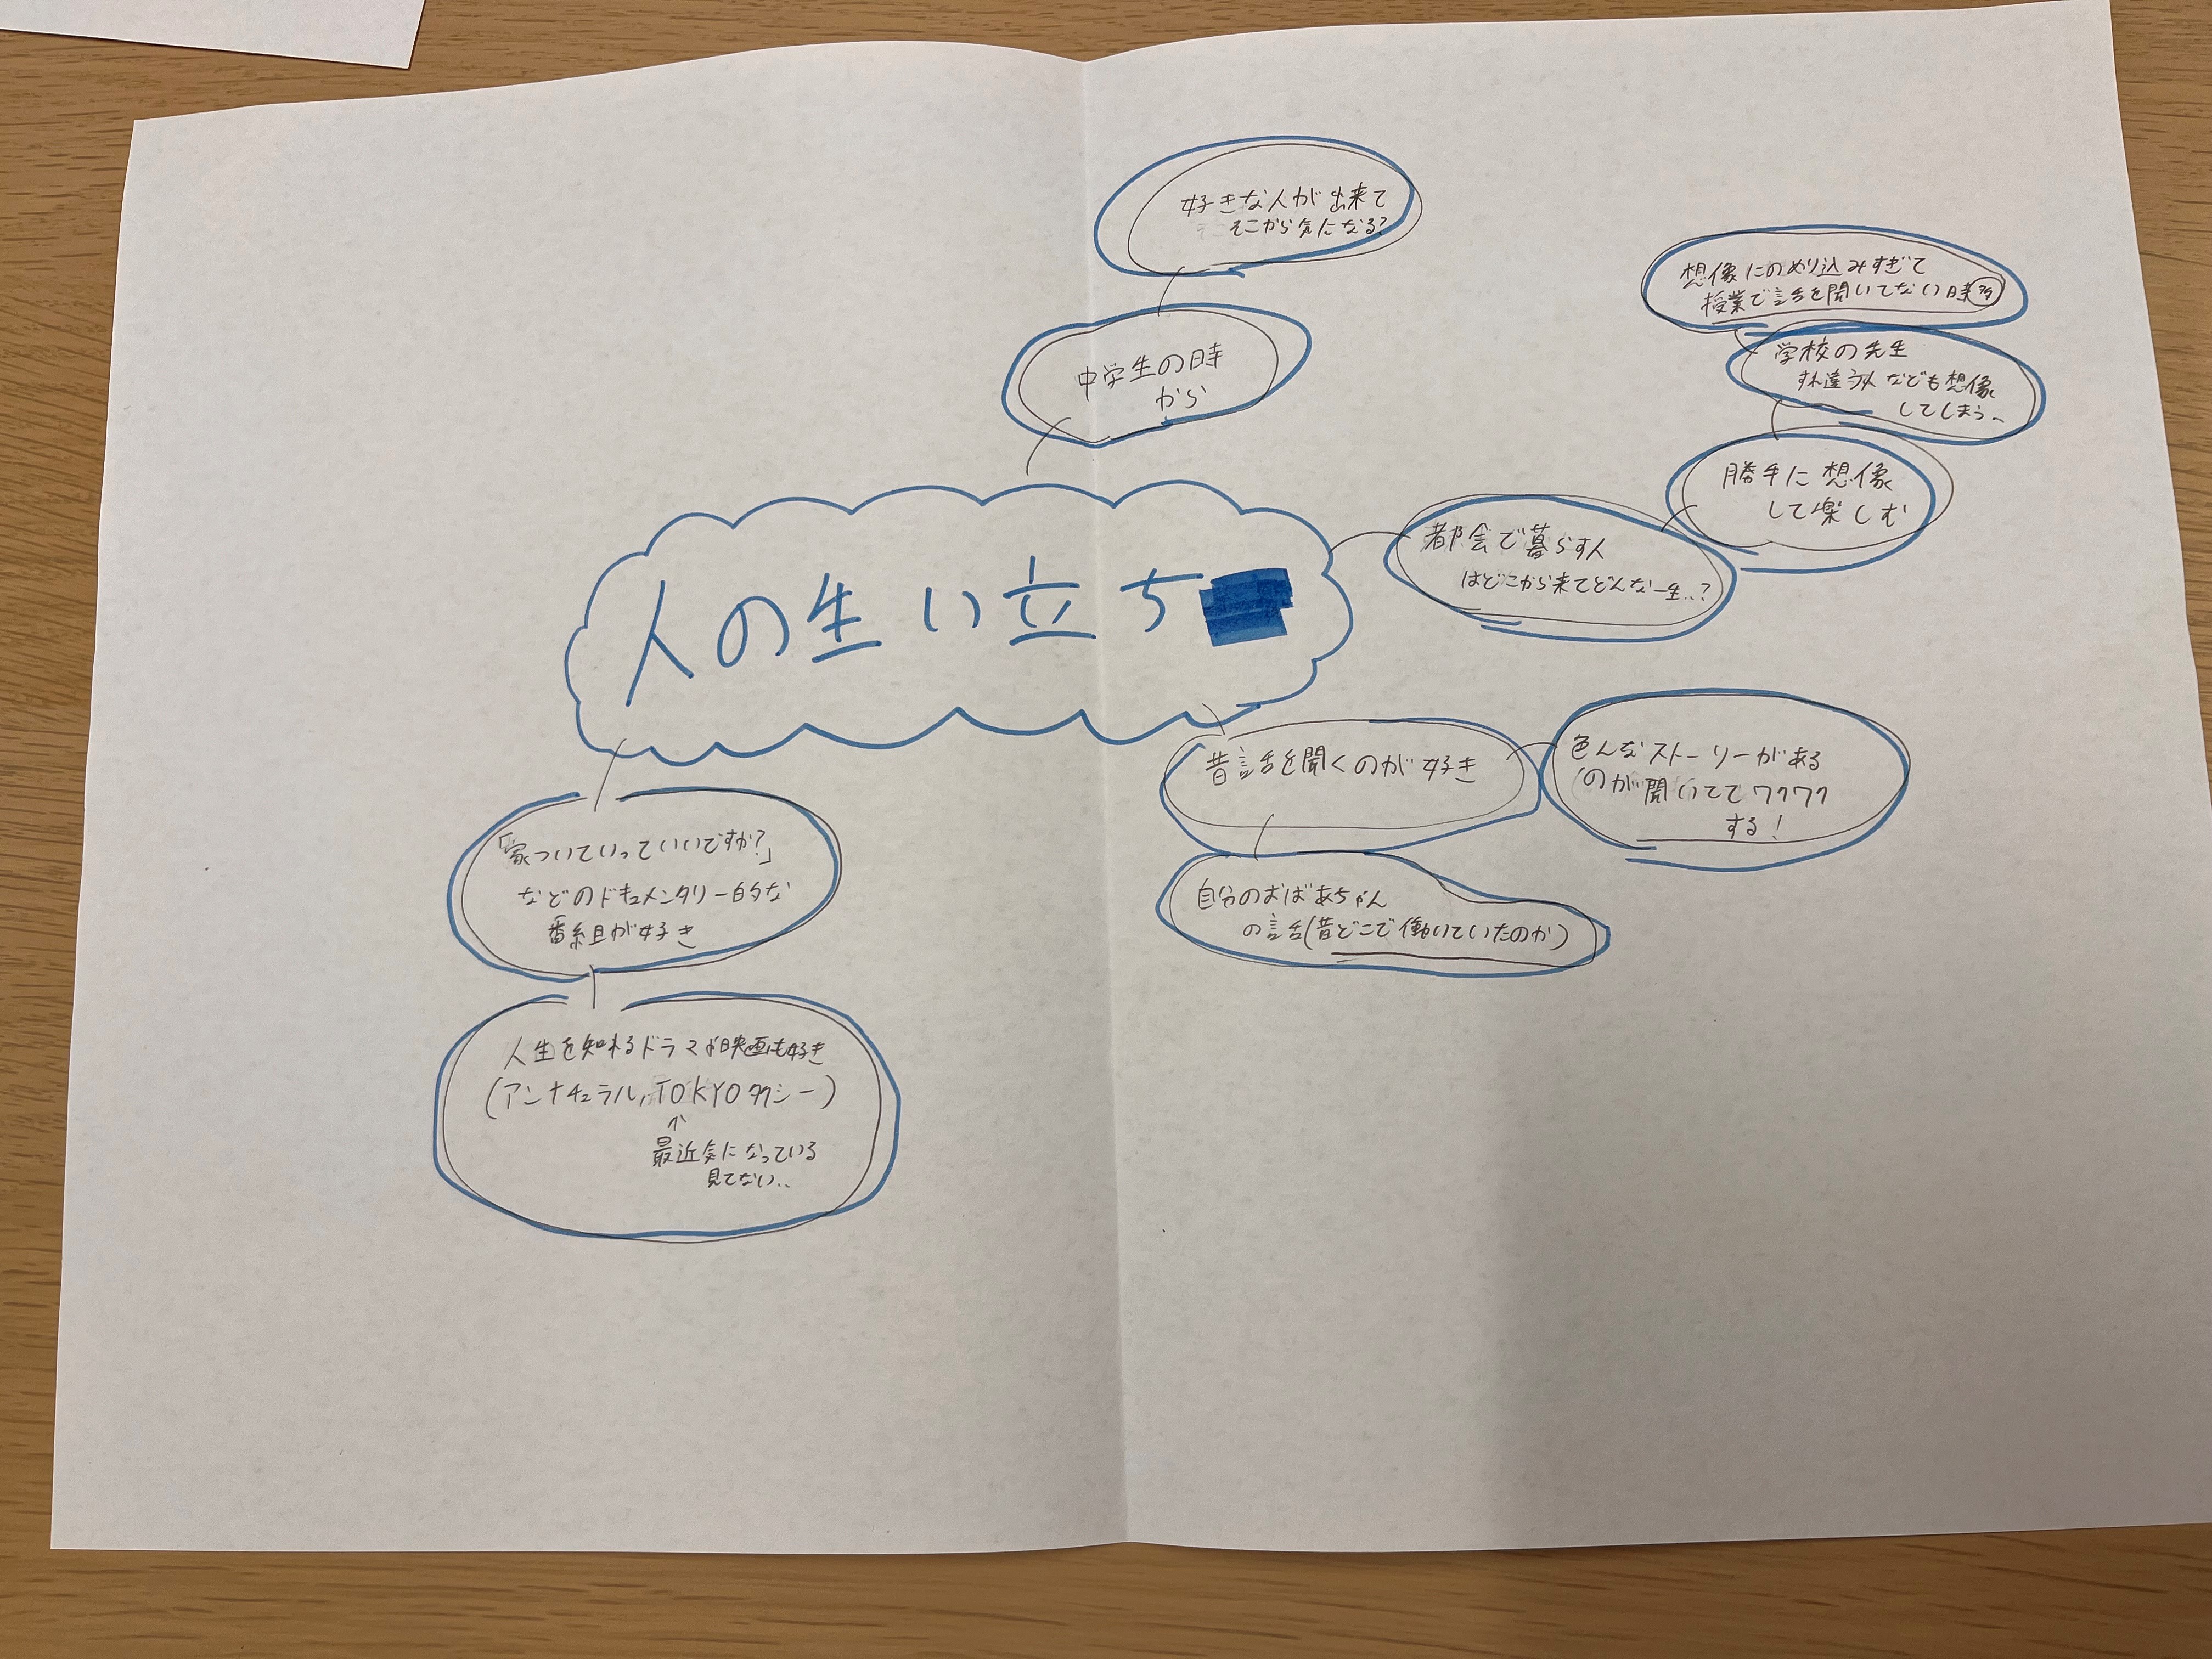 好きな人が出来て
そこから気になる?
中学生の時
から
想像にのめり込みすぎて
授業で話を聞いてない時多
学校の先生
すれ違う人なども想像
してしまう~
勝手に想像
して楽しむ
都会で暮らす人
はどこから来てどんな一生..?
人の生い立ち
昔話を聞くのが好き
色んなストーリーがある
のが聞いててワクワク
する!
自分のおばあちゃん
の話(昔どこで働いていたのか)
「家ついていっていいですか?」
などのドキュメンタリー的な
番組が好き
人生を知れるドラマや映画も好き
(アンナチュラル,TOKYOタクシー)
↑
最近気になっている
見てない..